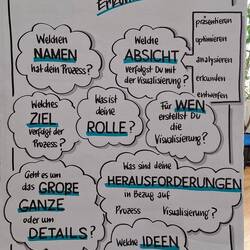 Welchen
NAMEN
hat dein Prozess?
Welche
ABSICHT
verfolgst Du mit
der Visualisierung?
präsentieren
optimieren
analysieren
erkunden
entwerfen
Welches
ZIEL
verfolgt der
Prozess?
Was ist
deine
ROLLE?
Für WEN
erstellst Du
die
Visualisierung?
Geht es um
das GROßE
GANZE
oder um
DETAILS?
Was sind deine
HERAUSFORDERUNGEN
in Bezug auf
Prozess Visualisierung?
Welche IDEEN